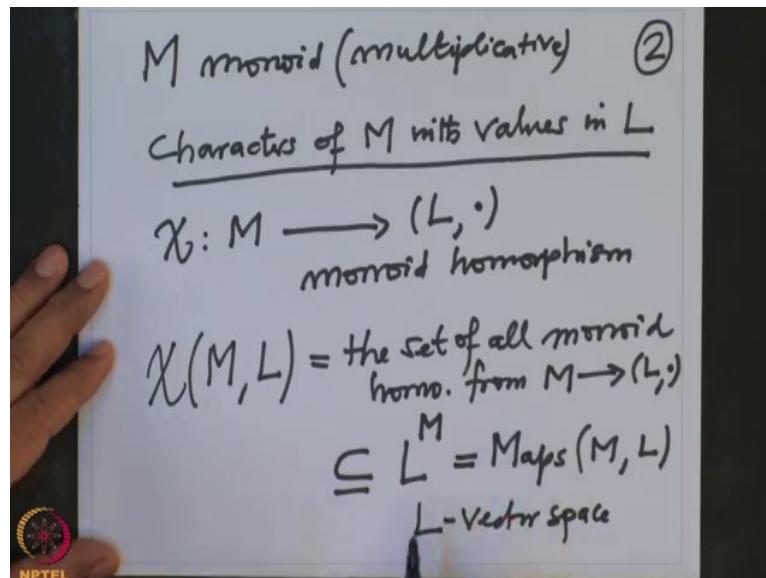 M monoid (multiplicative) ②
Characters of M with values in L
χ : M ⟶ (L, ·)
monoid homorphism
χ(M, L) = the set of all monoid
homo. from M ⟶ (L, ·)
⊆ L^M = Maps (M, L)
L-vector space
NPTEL